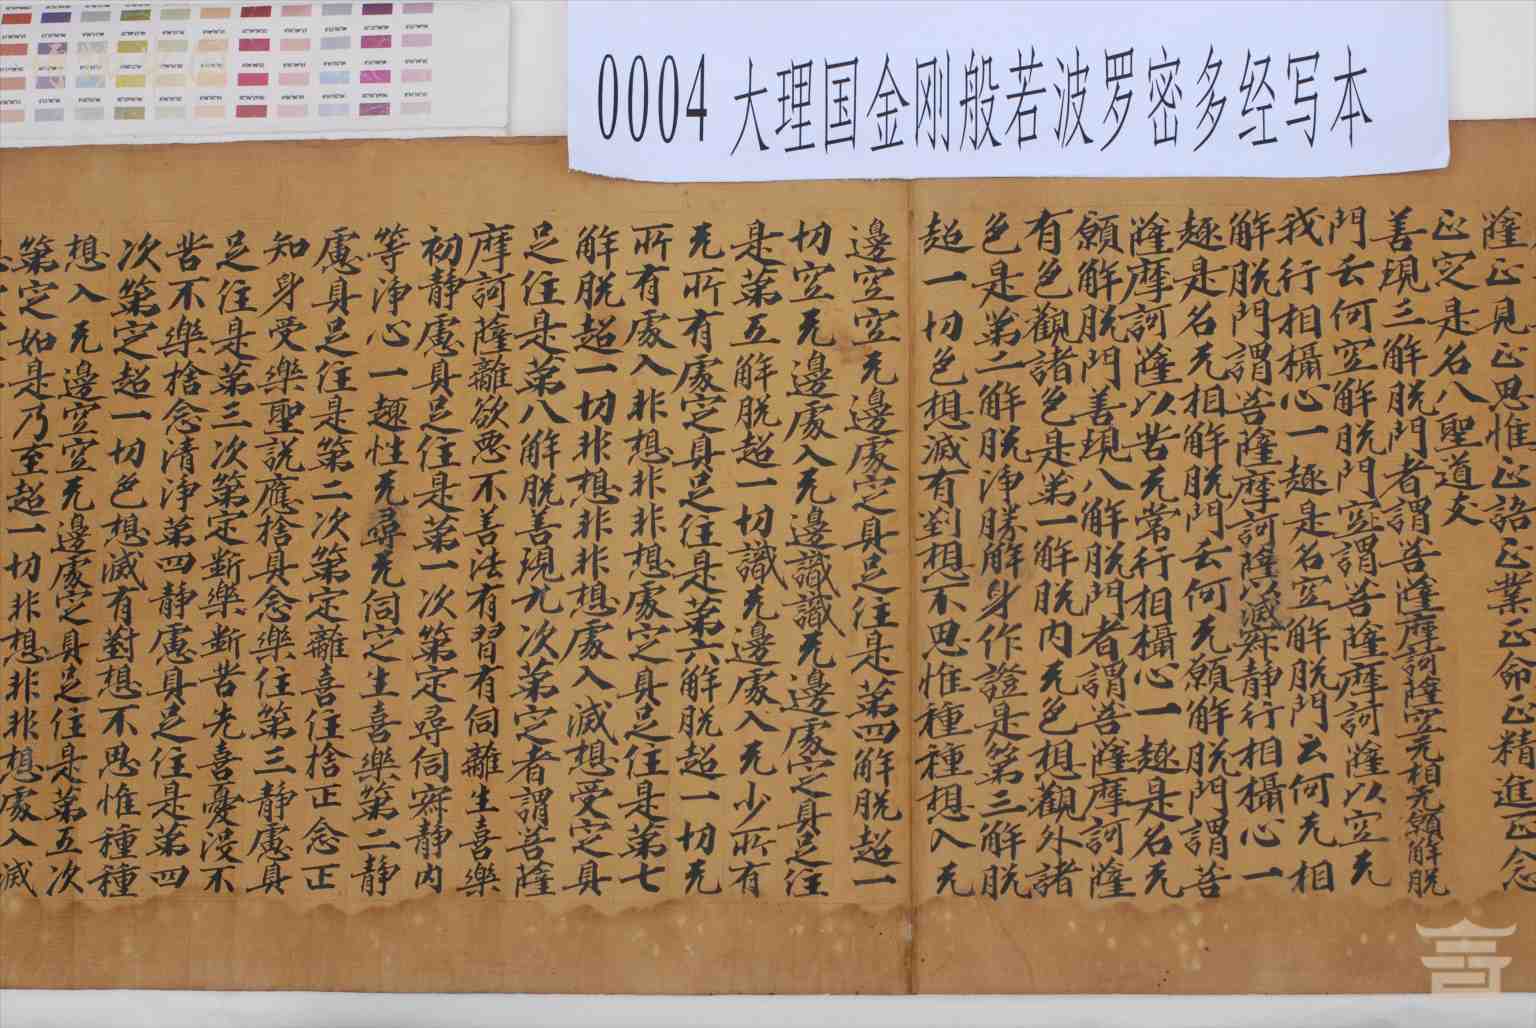 0004 大理国金刚般若波罗密多经写本
薩正見正思惟正語正業正命正精進正念
正定是名八聖道支
善現三解脫門者謂菩薩摩訶薩空无相无願解脫
門云何空解脫門空謂菩薩摩訶薩以空无
我行相攝心一趣是名空解脫門云何无相
解脫門謂菩薩摩訶薩以滅寂靜行相攝心一
趣是名无相解脫門云何无願解脫門謂菩
薩摩訶薩以苦无常行相攝心一趣是名无
願解脫門善現八解脫門者謂菩薩摩訶薩
有色觀諸色是第一解脫內无色想觀外諸
色是第二解脫淨勝解身作證是第三解脫
超一切色想滅有對想不思惟種種想入无
邊空空无邊處定具足住是第四解脫超一
切空无邊處入无邊識識无邊處定具足住
是第五解脫超一切識无邊處入无少所有
无所有處定具足住是第六解脫超一切无
所有處入非想非非想處定具足住是第七
解脫超一切非想非非想處入滅想受定具
足住是第八解脫善現九次第定者謂菩薩
摩訶薩離欲惡不善法有習有伺離生喜樂
初靜慮具足住是第一次第定尋伺寂靜內
等淨心一趣性无尋无伺定生喜樂第二靜
慮具足住是第二次第定離喜住捨正念正
知身受樂聖說應捨具念樂住第三靜慮具
足住是第三次第定斷樂斷苦先喜憂沒不
苦不樂捨念清淨第四靜慮具足住是第四
次第定超一切色想滅有對想不思惟種種
想入无邊空空无邊處定具足住是第五次
第定如是乃至超一切非想非非想處入滅